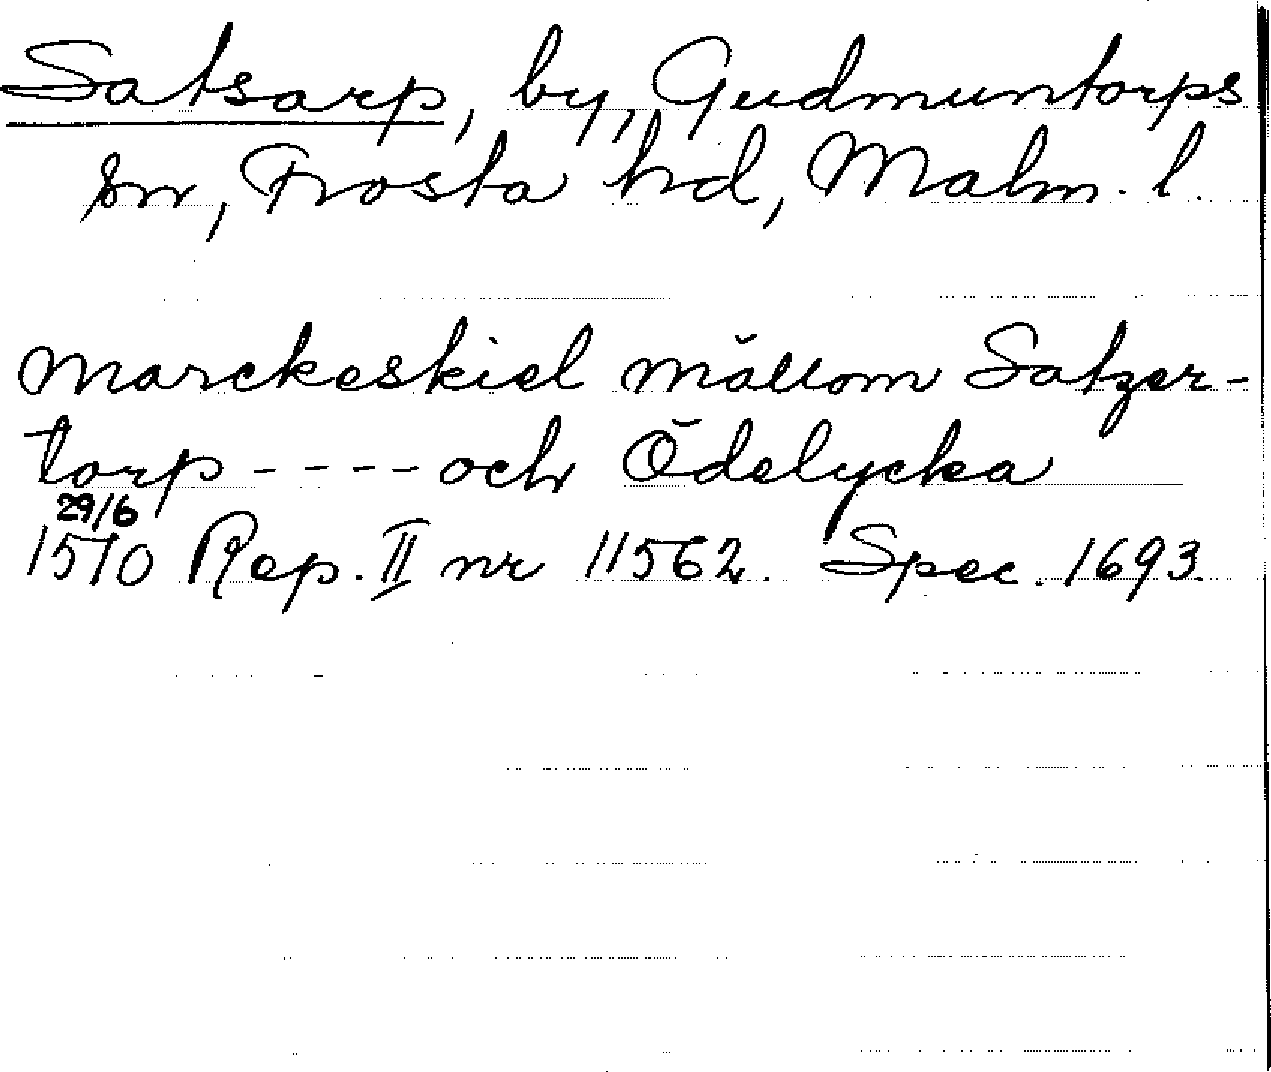 Satsarp, by, Gudmuntorps
sn, Frosta hd, Malm. l.
marckeskiel mällom Satzer-
torp ---- och Ödelycka
29/6
1510 Rep. II nr 11562. Spec. 1693.